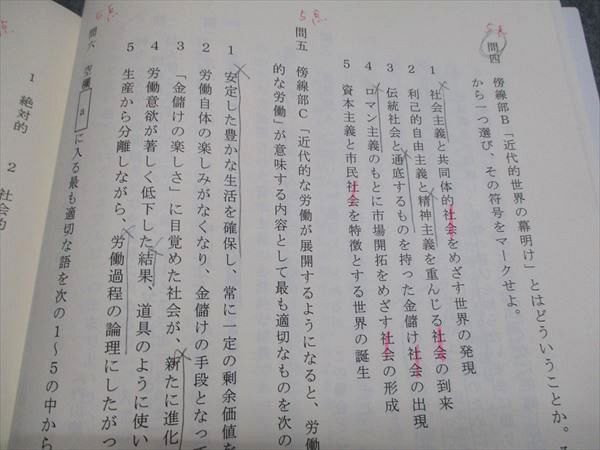 5点
問四 傍線部B「近代的世界の幕明け」とはどういうことか。
から一つ選び、その符号をマークせよ。
1 社会主義と共同体的社会をめざす世界の発現
2 利己的自由主義と精神主義を重んじる社会の到来
3 伝統社会と通底するものを持った金儲け社会の出現
4 ロマン主義のもとに市場開拓をめざす社会の形成
5 資本主義と市民社会を特徴とする世界の誕生
5点
問五 傍線部C「近代的な労働が展開するようになると、労働
的な労働」が意味する内容として最も適切なものを次の
1 安定した豊かな生活を確保し、常に一定の剰余価値を
2 労働自体の楽しみがなくなり、金儲けの手段となって
3 「金儲けの楽しさ」に目覚めた社会が、新たに進化
4 労働意欲が著しく低下した結果、道具のように使い
5 生産から分離しながら、労働過程の論理にしたがっ
点
問六 空欄aに入る最も適切な語を次の1〜5の中から
1 絶対的 2 社会的